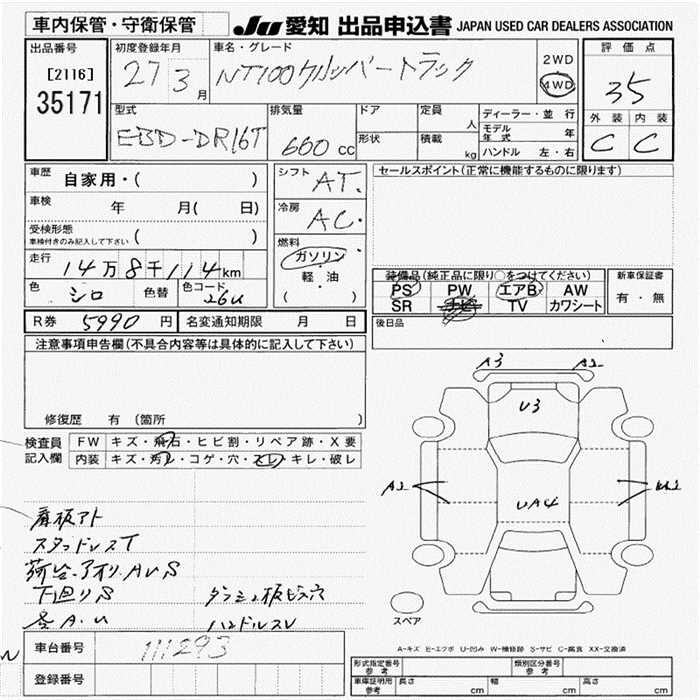 車内保管・守衛保管
JU 愛知 出品申込書 JAPAN USED CAR DEALERS ASSOCIATION
出品番号
[2116]
35171
初度登録年月
27 3月
車名・グレード
NT100クリッパートラック
2WD
4WD
評価点
35
外装 内装
C C
型式
EBD-DR16T
排気量
660 cc
ドア
形状
定員
人
積載
kg
ディーラー・並行
モデル年式 年
ハンドル 左・右
車歴 自家用・( )
車検 年 月( 日)
受検形態
車検付きのみ記入して下さい ( )
走行 14万8千114km
色 シロ 色替
色コード 26U
シフト AT
冷房 AC
燃料
ガソリン・
軽・油
( )
セールスポイント(正常に機能するものに限ります)
装備品(純正品に限り○をつけてください)
PS PW エアB AW
SR ナビ TV カワシート
新車保証書
有・無
R券 5990円
名変通知期限 月 日
後日品
注意事項申告欄(不具合内容等は具体的に記入して下さい)
修復歴 有 (箇所 )
検査員記入欄
FW キズ・飛石・ヒビ割・リペア跡・X要
内装 キズ・汚レ・コゲ・穴・スレ・キレ・破レ
看板アト
スタッドレスT
荷台、アオリ、AUS
下廻りS
ダッシュ板ビス穴
A.U
ハンドルスレ
A3 A2
U3
A2
UA4
スペア
A-キズ E-エクボ U-凹み W-補修跡 S-サビ C-腐食 XX-交換済
車台番号 111293
登録番号
形式指定番号 参考
類別区分番号 参考
車庫証明用 参考
長さ cm
幅 cm
高さ cm